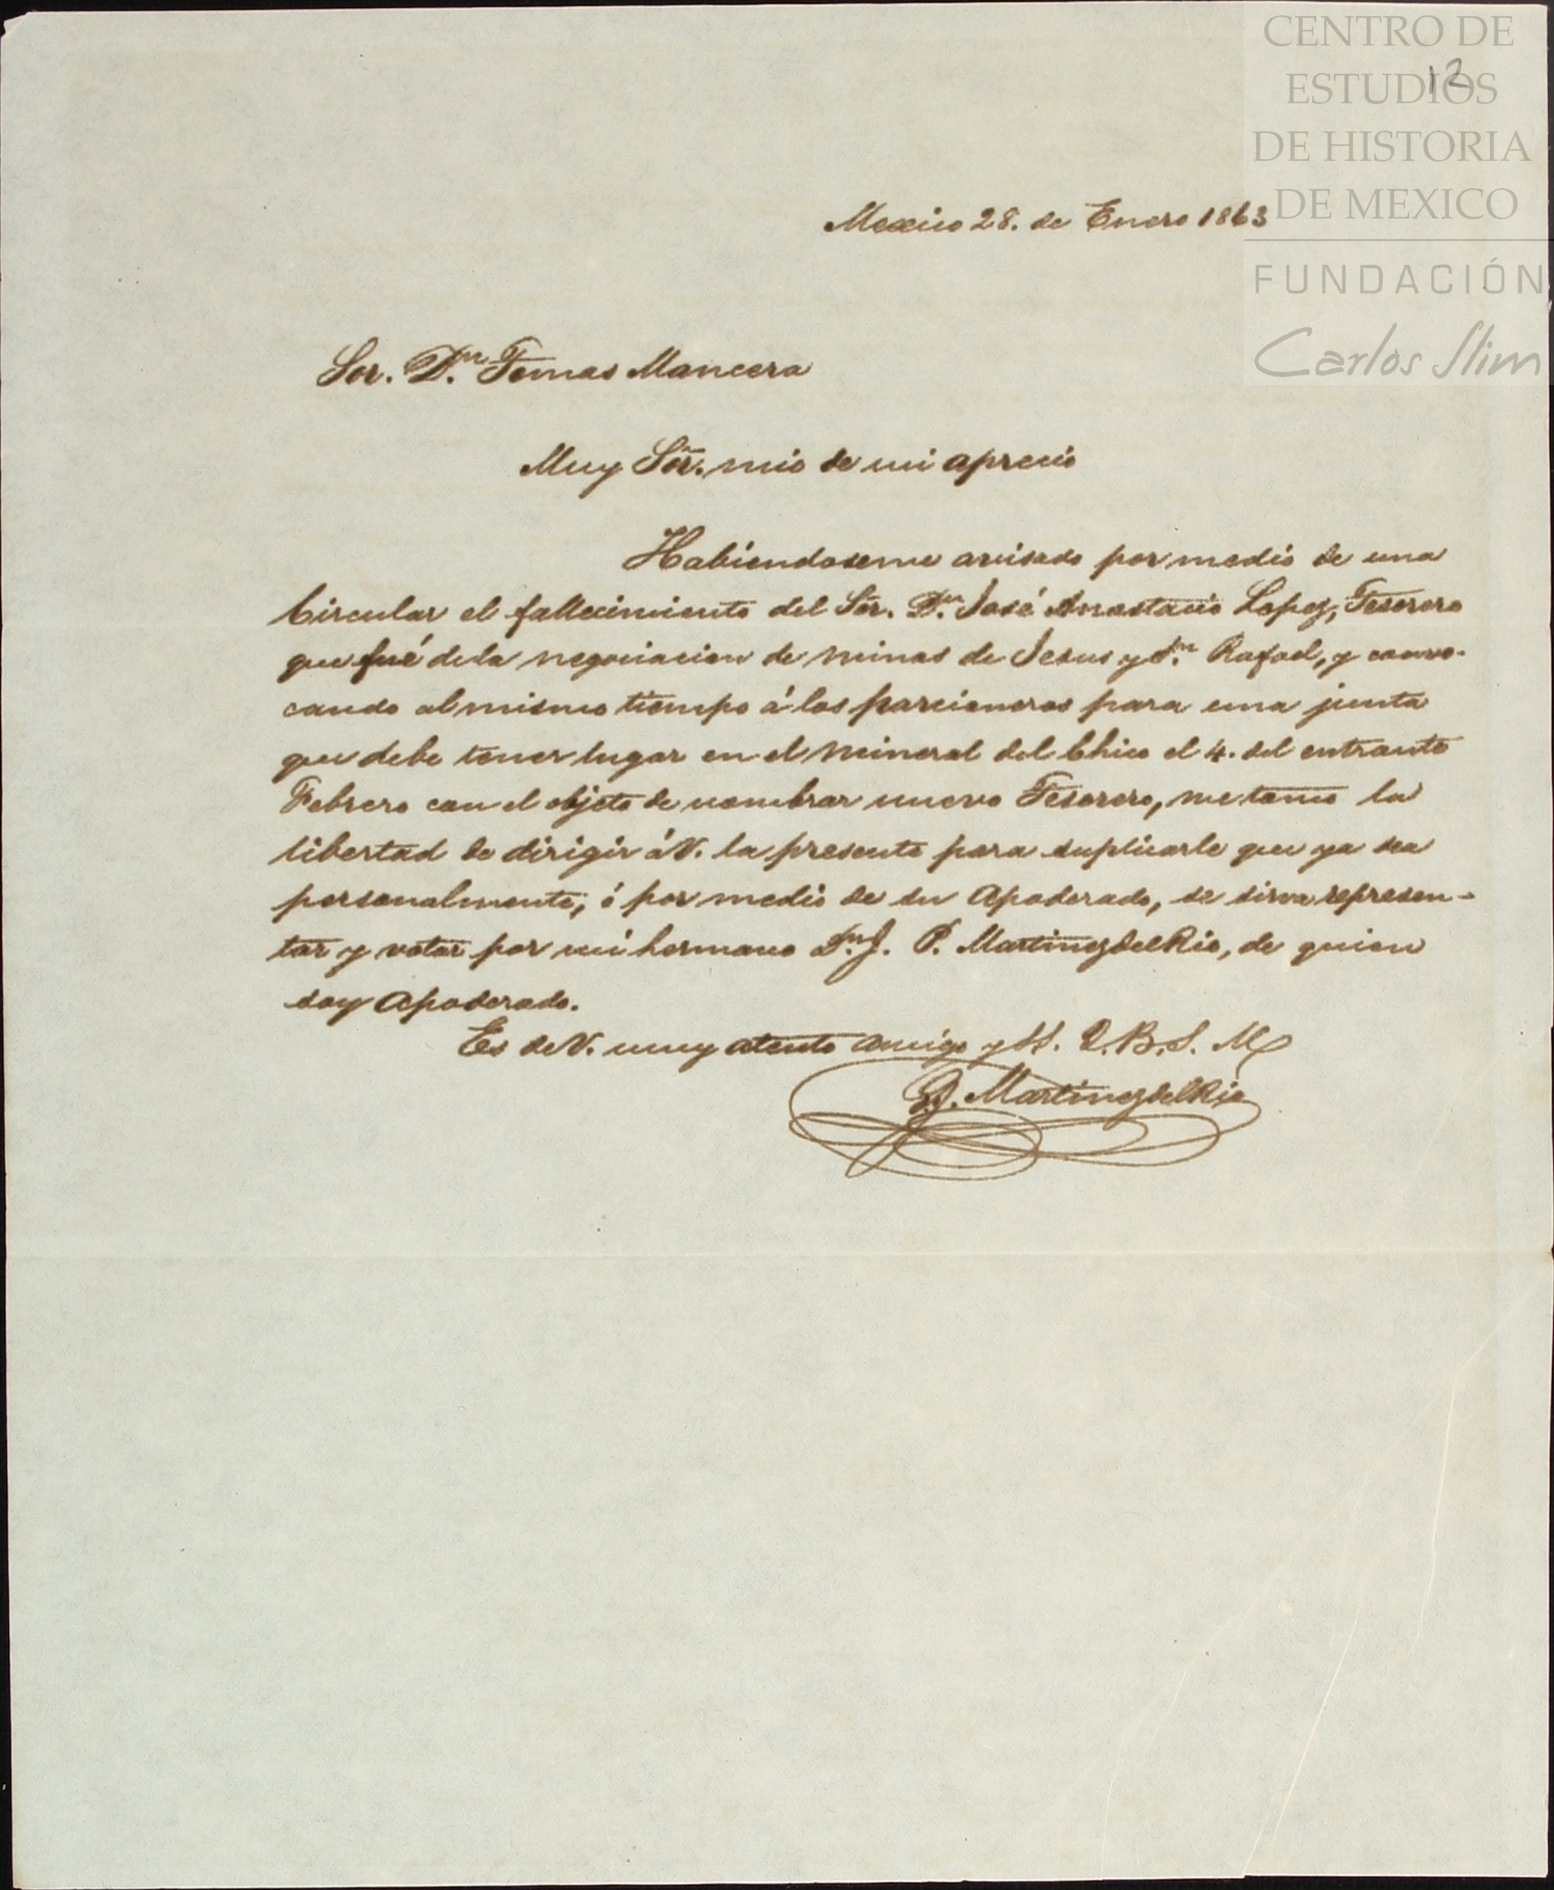 CENTRO DE
ESTUDIOS
DE HISTORIA
DE MEXICO
FUNDACIÓN
Carlos Slim
12
Mexico 28. de Enero 1863
Sor. Dn. Tomas Mancera
Muy Sōr. mio de mi aprecio
Habiendoseme avisado por medio de una
Circular el fallecimiento del Sōr. Dn. José Anastacio Lopez, Tesorero
que fué dela negociacion de minas de Jesus y Sn. Rafael, y convo-
cando al mismo tiempo á los parcioneros para una junta
que debe tener lugar en el Mineral del Chico el 4. del entrante
Febrero con el objeto de nombrar nuevo Tesorero, me tomo la
libertad de dirigir á V. la presente para suplicarle que ya sea
personalmente, ó por medio de su Apoderado, se sirva represen-
tar y votar por mi hermano Dn. J. P. Martinez del Rio, de quien
soy Apoderado.
Es de V. muy atento amigo y S. Q. B. S. M
Martinez del Rio